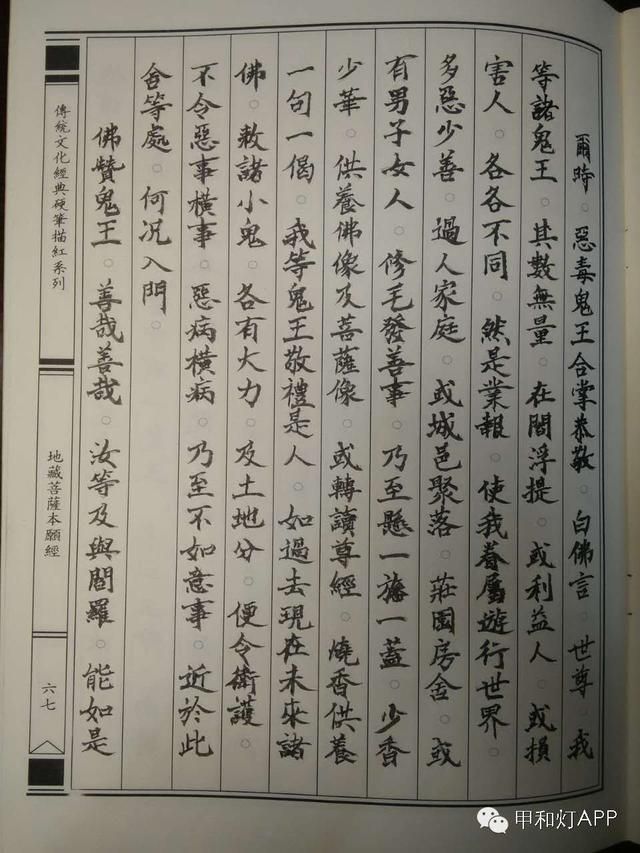 爾時。惡毒鬼王合掌恭敬。白佛言。世尊。我
等諸鬼王。其數無量。在閻浮提。或利益人。或損
害人。各各不同。然是業報。使我眷屬遊行世界。
多惡少善。過人家庭。或城邑聚落。莊園房舍。或
有男子女人。修毛發善事。乃至懸一旛一蓋。少香
少華。供養佛像及菩薩像。或轉讀尊經。燒香供養
一句一偈。我等鬼王敬禮是人。如過去現在未來諸
佛。敕諸小鬼。各有大力。及土地分。便令衛護。
不令惡事橫事。惡病橫病。乃至不如意事。近於此
舍等處。何況入門。
佛贊鬼王。善哉善哉。汝等及與閻羅。能如是
傳統文化經典硬筆描紅系列
地藏菩薩本願經
六七
甲和灯APP